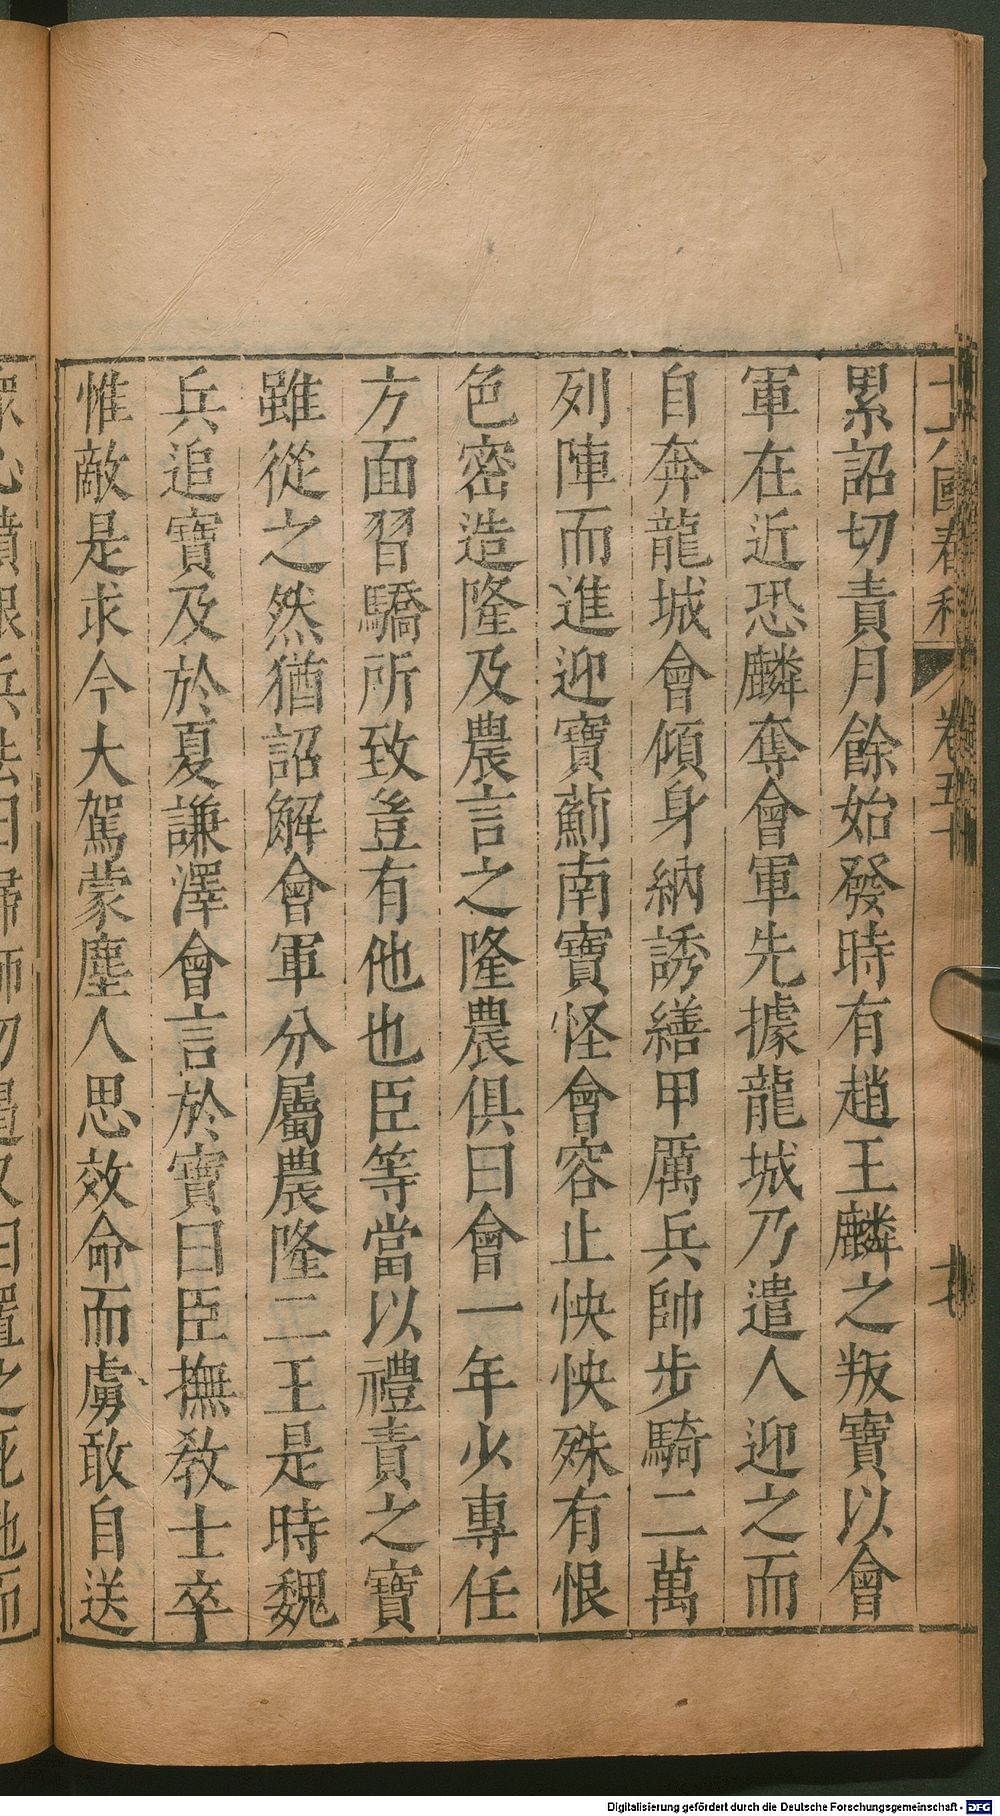 十六國春秋 卷五十
累詔切責月餘始發時有趙王麟之叛寶以會
軍在近恐麟奪會軍先據龍城乃遣人迎之而
自奔龍城會傾身納誘繕甲厲兵帥步騎二萬
列陣而進迎寶薊南寶怪會容止怏怏殊有恨
色密造隆及農言之隆農俱曰會一年少專任
方面習驕所致豈有他也臣等當以禮責之寶
雖從之然猶詔解會軍分屬農隆二王是時魏
兵追寶及於夏謙澤會言於寶曰臣撫敎士卒
惟敵是求今大駕蒙塵人思效命而虜敢自送
Digitalisierung gefördert durch die Deutsche Forschungsgemeinschaft - DFG